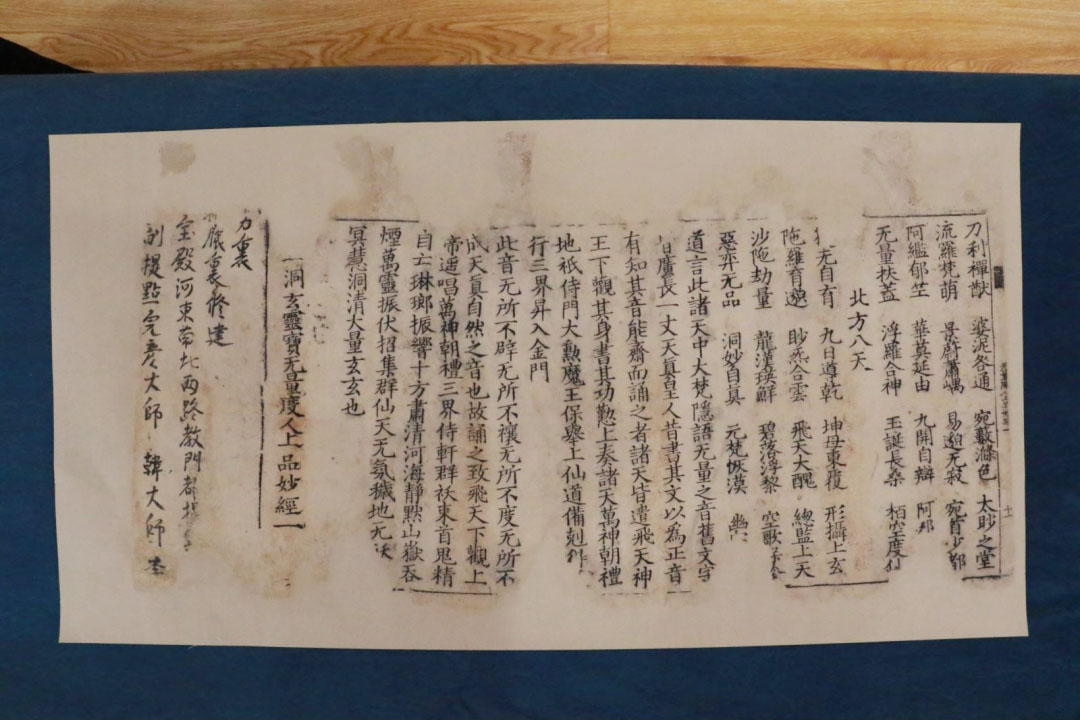 刀利禪猷 婆泥各通 宛藪滌色 太眇之堂
流羅梵萌 景蔚蕭嵎 易邈无寂 宛首少都
阿䍉郁竺 華莫延由 九開自辯 阿那
无量扶蓋 浮羅合神 玉誕長桑 栢空度仙
北方八天
无自育 九日導乾 坤母東覆 形攝上玄
陁羅育邈 眇炁合雲 飛天大醜 緫監上天
沙陁劫量 龍漢瑛鮮 碧落浮黎 空歌
惡弈无品 洞妙自眞 元梵恢漠 幽
道言此諸天中大梵隱語无量之音舊文字
皆廣長一丈天真皇人昔書其文以為正音
有知其音能齋而誦之者諸天皆遣飛天神
王下觀其身書其功懃上奏諸天萬神朝禮
地祇侍門大勲魔王保舉上仙道備剋
行三界昇入金門
此音无所不辟无所不禳无所不度无所不
成天真自然之音也故誦之致飛天下觀上
帝遥唱萬神朝禮三界侍軒群袄束首鬼精
自亡琳瑯振響十方肅清河海靜黙山嶽吞
煙萬靈振伏招集群仙天无氛穢地无
冥慧洞清大量玄玄也
洞玄靈寶无量度人上品妙經
裏
裏修建
宝殿河東南北两路教門都
副提點 大師 韓大師